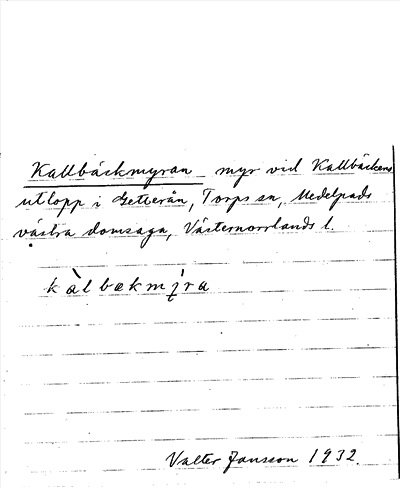 Kallbäckmyran myr vid Kallbäckens
utlopp i Getterån, Torps sn, Medelpads
västra domsaga, Västernorrlands l.
kàlbækmí̜ra
Valter Jansson 1932.